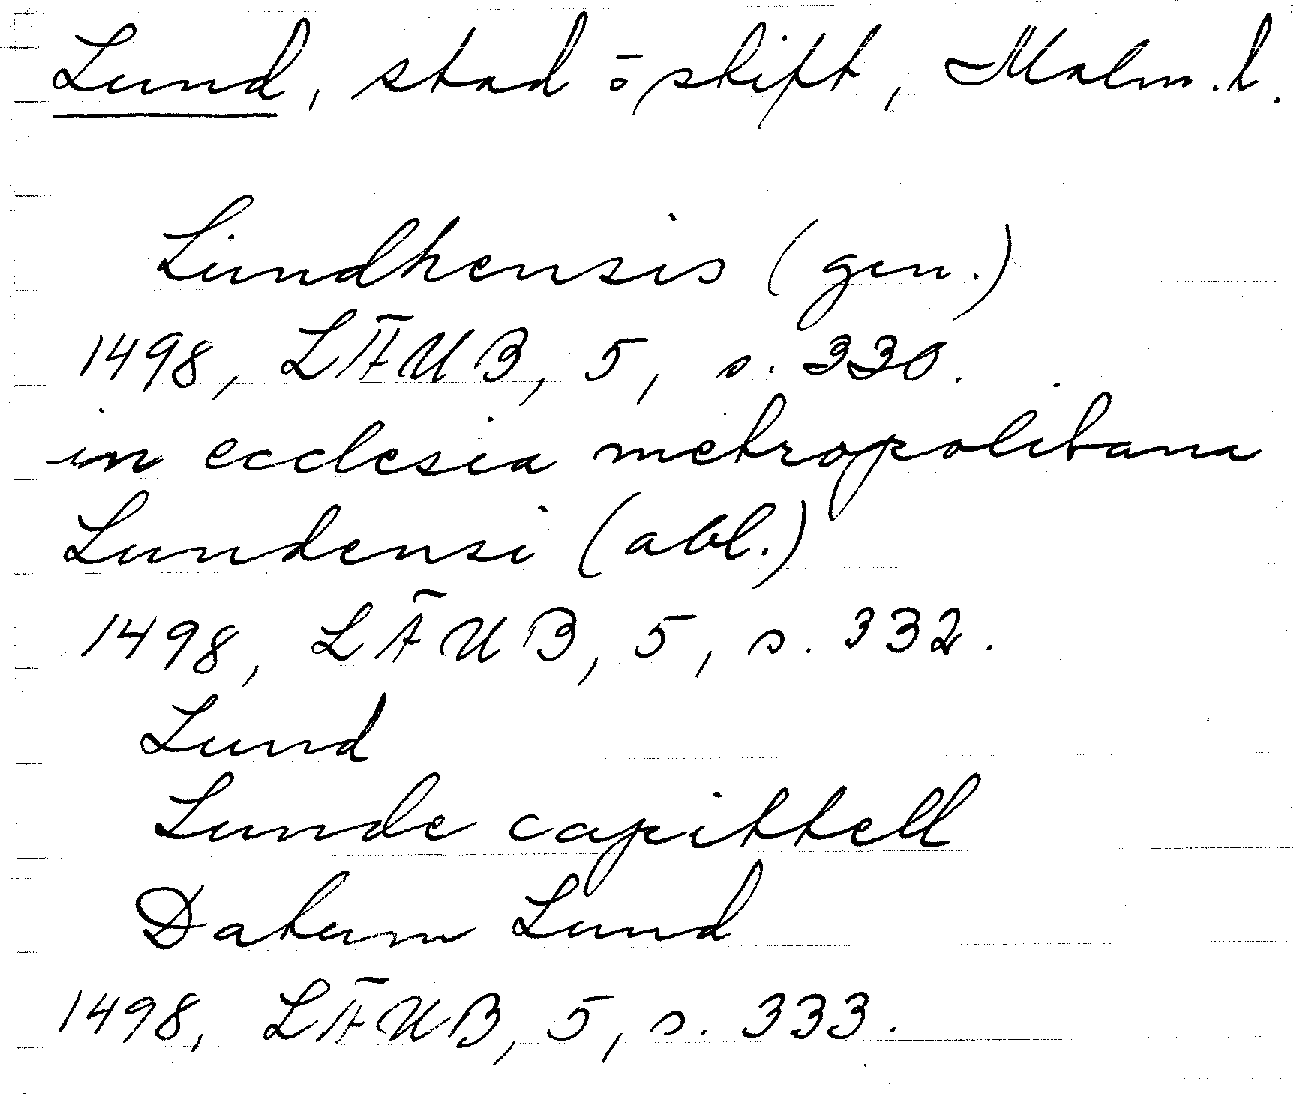 Lund, stad o skift, Malm.l.
Lundhensis (gen.)
1498, LÄUB, 5, s. 330.
in ecclesia metropolitana
Lundensi (abl.)
1498, LÄUB, 5, s. 332.
Lund
Lunde capittell
Datum Lund
1498, LÄUB, 5, s. 333.